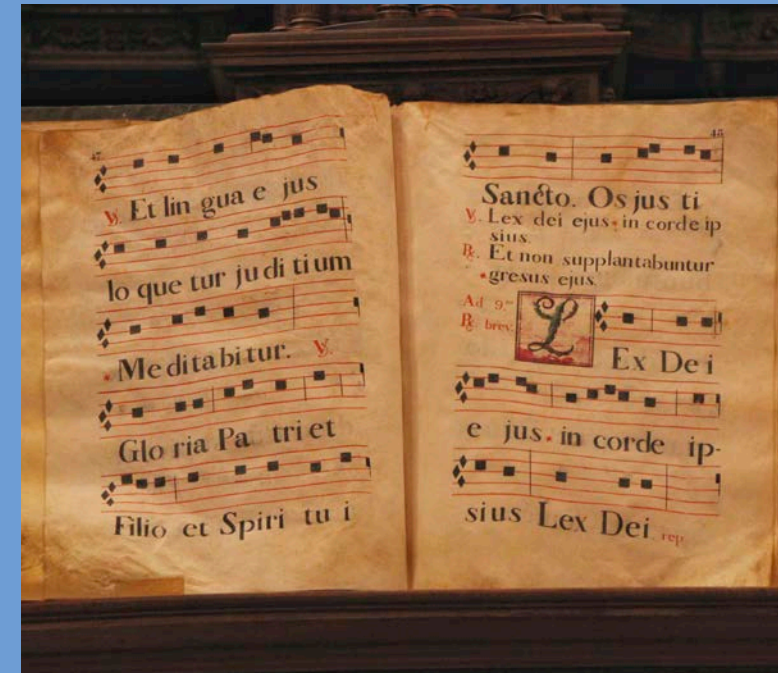 47.
℣. Et lin gua e jus
lo que tur ju di ti um
• Me di ta bi tur. ℣.
Glo ria Pa tri et
Filio et Spiri tu i
48
Sancto. Os jus ti
℣. Lex dei ejus • in corde ip
sius.
℟. Et non supplantabuntur
• gresus ejus.
Ad 9.ᵐ
℟. brev.
L
Ex De i
e jus • in corde ip-
sius Lex Dei rep.